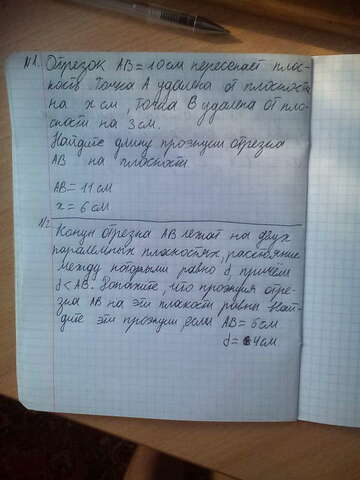 N1. Отрезок AB = 10 см пересекает плос-
кость. Точка A удалена от плоскости
на x см, точка B удалена от пло-
скости на 3 см.
Найдите длину проэкции отрезка
AB на плоскости.
AB = 11 см
x = 6 см
N2 Концы отрезка AB лежат на двух
параллельных плоскостях, расстояние
между которыми равно d, причем
d < AB. Докажите, что проэкция отре-
зка AB на эти плоскости равны. Най-
дите эти проэкции, если AB = 5 см
d = 4 см